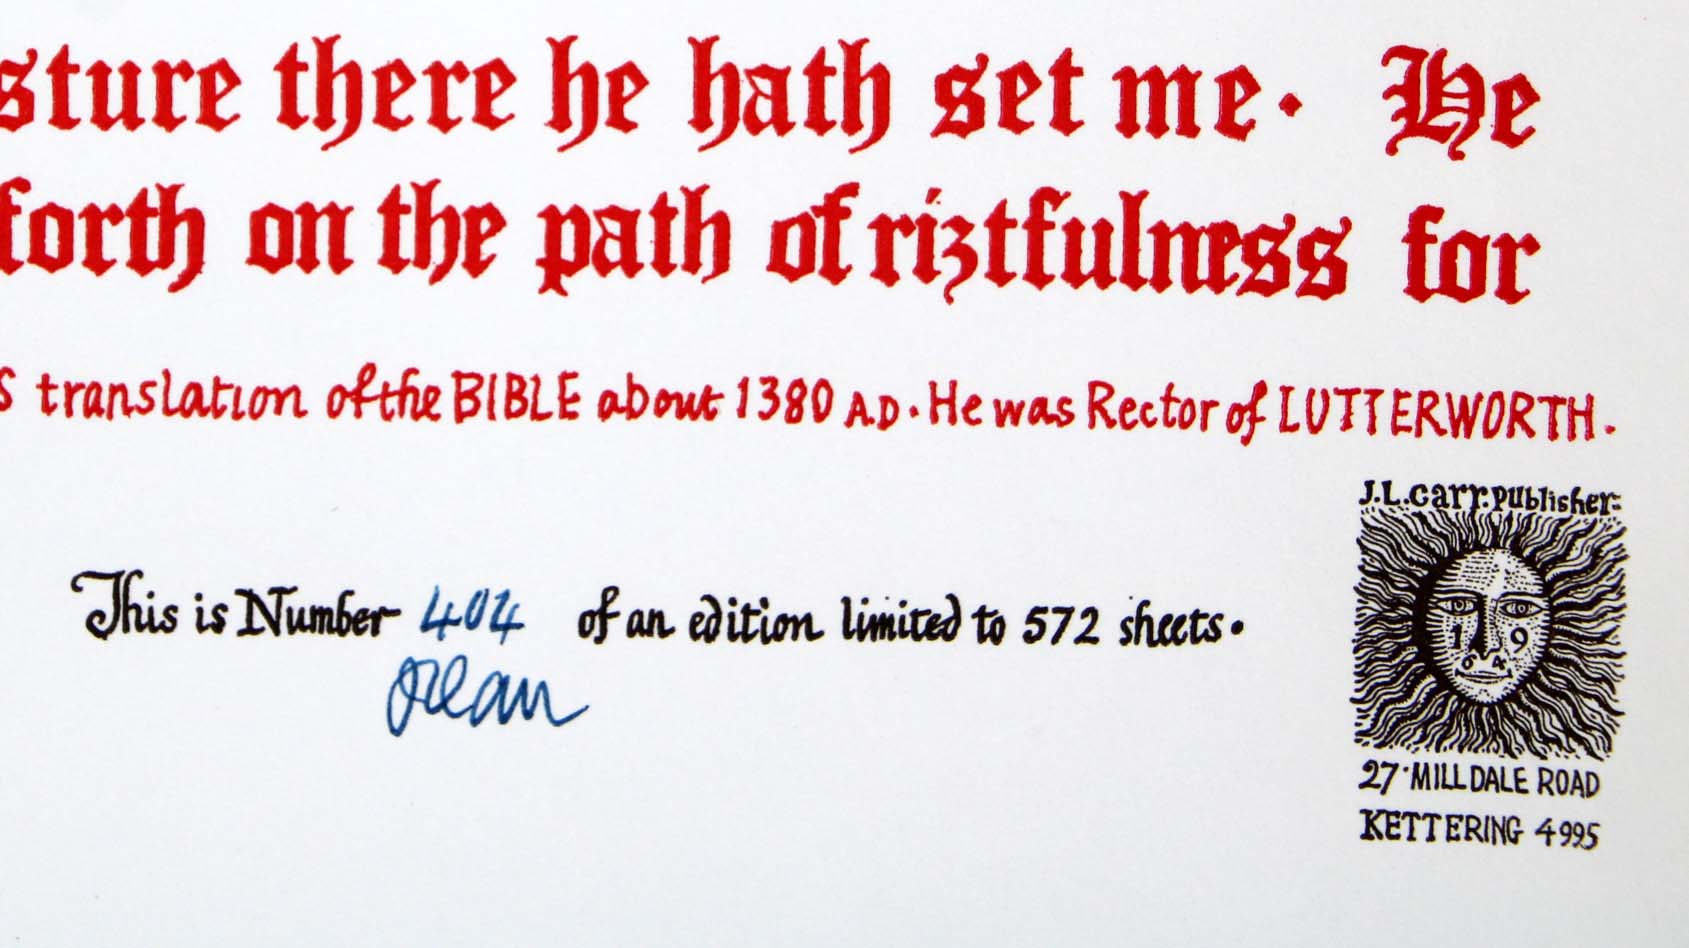 sture there he hath set me. He
forth on the path of riztfulness for
s translation of the BIBLE about 1380 A.D. He was Rector of LUTTERWORTH.
This is Number 404 of an edition limited to 572 sheets.
J.L. Carr. Publisher
1 9
6 4
27 · MILLDALE ROAD
KETTERING 4995